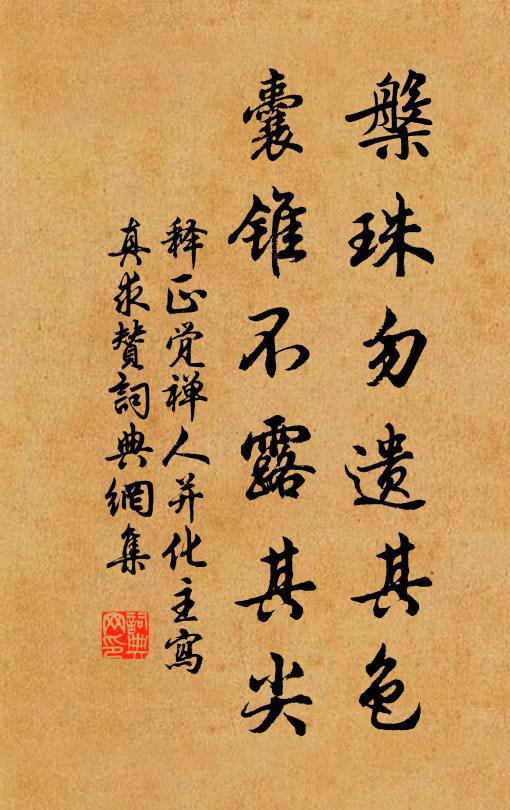 槃珠勿遗其色
囊锥不露其尖
释正觉禅人并化主寫
真求赞詞典網集
詞典网印